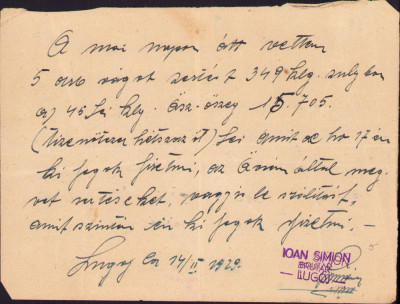 A mai napon átt vettem
5 drb vágot sertést 349 klg. sulyban
a) 45 Lei klg. Ösz-öszeg 15.705.
(Tizenötezer hétszáz öt) Lei amit de ho 17 én
ki fogok fizetni, az Ön által meg
vet sertéseket, vagyis le szálitott,
amit szintén én ki fogok fizetni. —
Lugoj la 14/II 1929.
IOAN SIMION
BRUTAR
— LUGOJ —